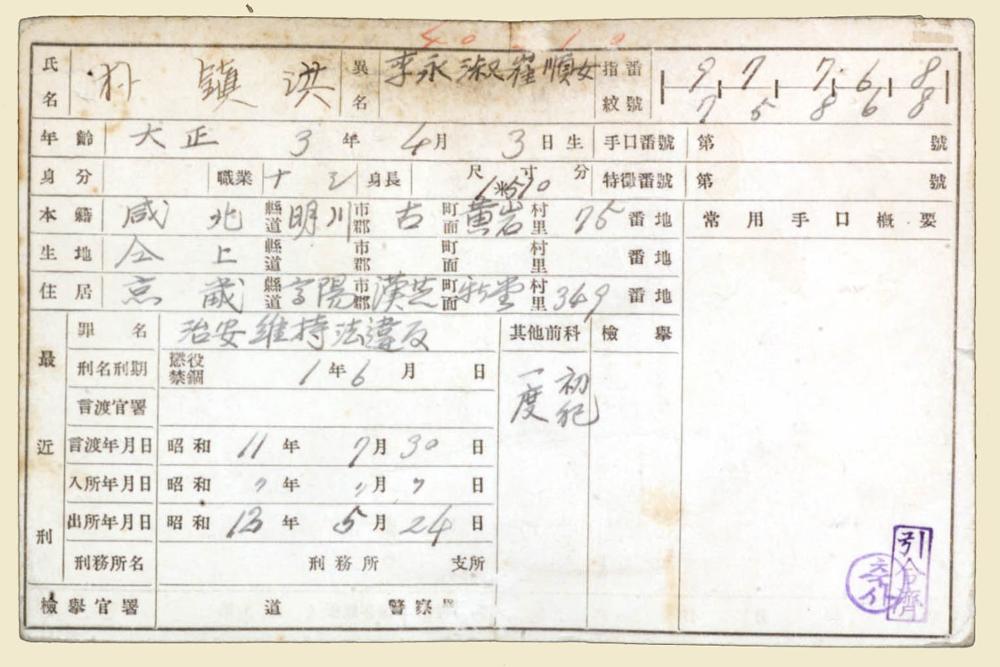 40-10
氏名 朴鎭洪 異名 李永淑 崔順女 指紋番號 9 7 7 6 8
7 5 8 6 8
年齡 大正 3年 4月 3日生 手口番號 第 號
身分 職業 ナシ 身長 尺 寸 分 特徵番號 第 號
本籍 咸北 縣道 明川 市郡 古 町面 黃岩 村里 75 番地 常用手口槪要
生地 仝上 縣道 市郡 町面 村里 番地
住居 京畿 縣道 高陽 市郡 漢芝 町面 新堂 村里 349 番地
最近刑 罪名 治安維持法違反 其他前科 檢擧
刑名刑期 懲役 禁錮 1年6月 日 初犯
一度
言渡官署
言渡年月日 昭和 11年 7月 30日
入所年月日 昭和 〃年 〃月 〃日
出所年月日 昭和 13年 5月 24日
刑務所名 刑務所 支所
檢擧官署 道 警察
引合濟